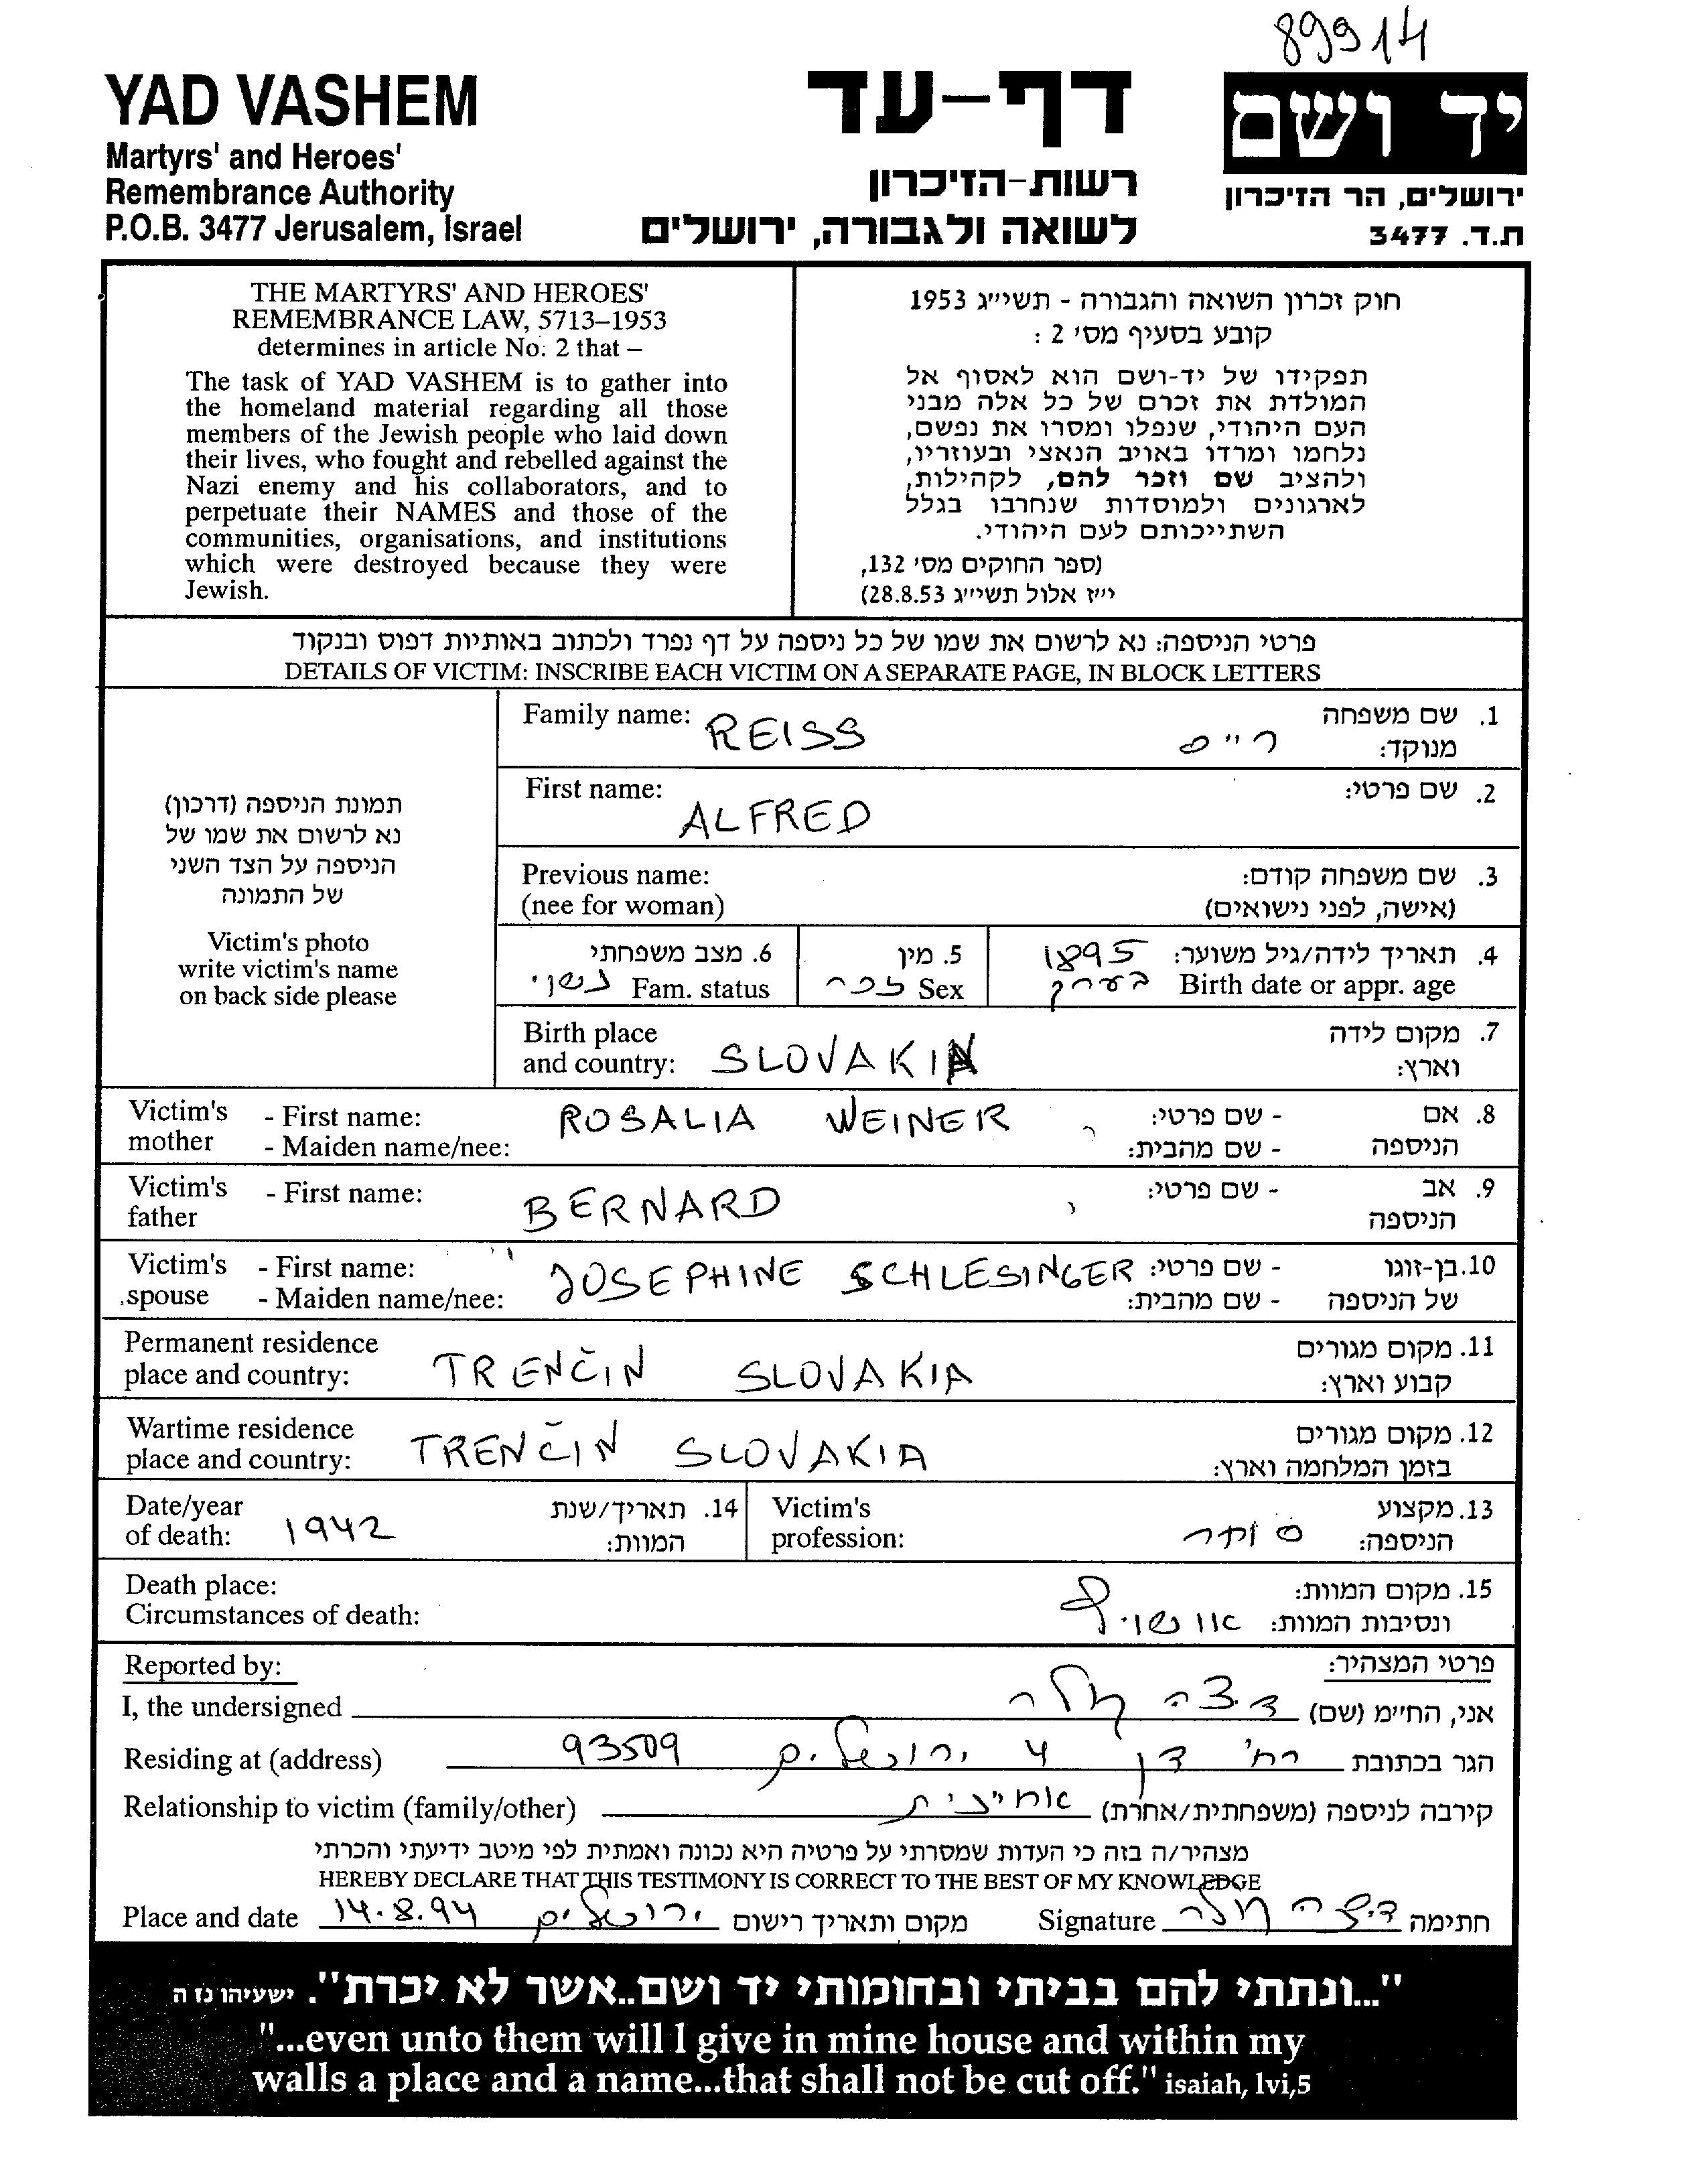 89914
YAD VASHEM
Martyrs' and Heroes'
Remembrance Authority
P.O.B. 3477 Jerusalem, Israel
דף-עד
רשות-הזיכרון
לשואה ולגבורה, ירושלים
יד ושם
ירושלים, הר הזיכרון
ת.ד. 3477
THE MARTYRS' AND HEROES'
REMEMBRANCE LAW, 5713–1953
determines in article No. 2 that –
The task of YAD VASHEM is to gather into
the homeland material regarding all those
members of the Jewish people who laid down
their lives, who fought and rebelled against the
Nazi enemy and his collaborators, and to
perpetuate their NAMES and those of the
communities, organisations, and institutions
which were destroyed because they were
Jewish.
חוק זכרון השואה והגבורה - תשי״ג 1953
קובע בסעיף מס׳ 2 :
תפקידו של יד-ושם הוא לאסוף אל
המולדת את זכרם של כל אלה מבני
העם היהודי, שנפלו ומסרו את נפשם,
נלחמו ומרדו באויב הנאצי ובעוזריו,
ולהציב שם וזכר להם, לקהילות,
לארגונים ולמוסדות שנחרבו בגלל
השתייכותם לעם היהודי.
(ספר החוקים מס׳ 132,
י״ז אלול תשי״ג 28.8.53)
פרטי הניספה: נא לרשום את שמו של כל ניספה על דף נפרד ולכתוב באותיות דפוס ובנקוד
DETAILS OF VICTIM: INSCRIBE EACH VICTIM ON A SEPARATE PAGE, IN BLOCK LETTERS
תמונת הניספה (דרכון)
נא לרשום את שמו של
הניספה על הצד השני
של התמונה
Victim's photo
write victim's name
on back side please
Family name: REISS
רייס
1. שם משפחה
מנוקד:
First name: ALFRED
2. שם פרטי:
Previous name:
(nee for woman)
3. שם משפחה קודם:
(אישה, לפני נישואים)
4. תאריך לידה/גיל משוער: 1895
Birth date or appr. age בערך
5. מין
Sex זכר
6. מצב משפחתי
Fam. status נשוי
Birth place
and country: SLOVAKIA
7. מקום לידה
וארץ:
Victim's mother - First name: ROSALIA WEINER
- Maiden name/nee:
8. אם הניספה - שם פרטי:
- שם מהבית:
Victim's father - First name: BERNARD
9. אב הניספה - שם פרטי:
Victim's spouse - First name: JOSEPHINE SCHLESINGER
- Maiden name/nee:
10. בן-זוגו של הניספה - שם פרטי:
- שם מהבית:
Permanent residence
place and country: TRENČIN SLOVAKIA
11. מקום מגורים
קבוע וארץ:
Wartime residence
place and country: TRENČIN SLOVAKIA
12. מקום מגורים
בזמן המלחמה וארץ:
Date/year
of death: 1942
14. תאריך/שנת
המוות:
Victim's
profession: סוחר
13. מקצוע
הניספה:
Death place:
Circumstances of death:
15. מקום המוות:
ונסיבות המוות: אושויץ
Reported by:
פרטי המצהיר:
I, the undersigned
אני, החי״מ (שם) דיצה
Residing at (address)
הגר בכתובת רח' דן 4 ירושלים 93509
Relationship to victim (family/other)
קירבה לניספה (משפחתית/אחרת) אחיינית
מצהיר/ה בזה כי העדות שמסרתי על פרטיה היא נכונה ואמתית לפי מיטב ידיעתי והכרתי
HEREBY DECLARE THAT THIS TESTIMONY IS CORRECT TO THE BEST OF MY KNOWLEDGE
Place and date 14.8.94 ירושלים מקום ותאריך רישום
Signature דיצה חתימה
"...ונתתי להם בביתי ובחומותי יד ושם..אשר לא יכרת". ישעיהו נז ה
"...even unto them will I give in mine house and within my
walls a place and a name...that shall not be cut off." isaiah, lvi,5